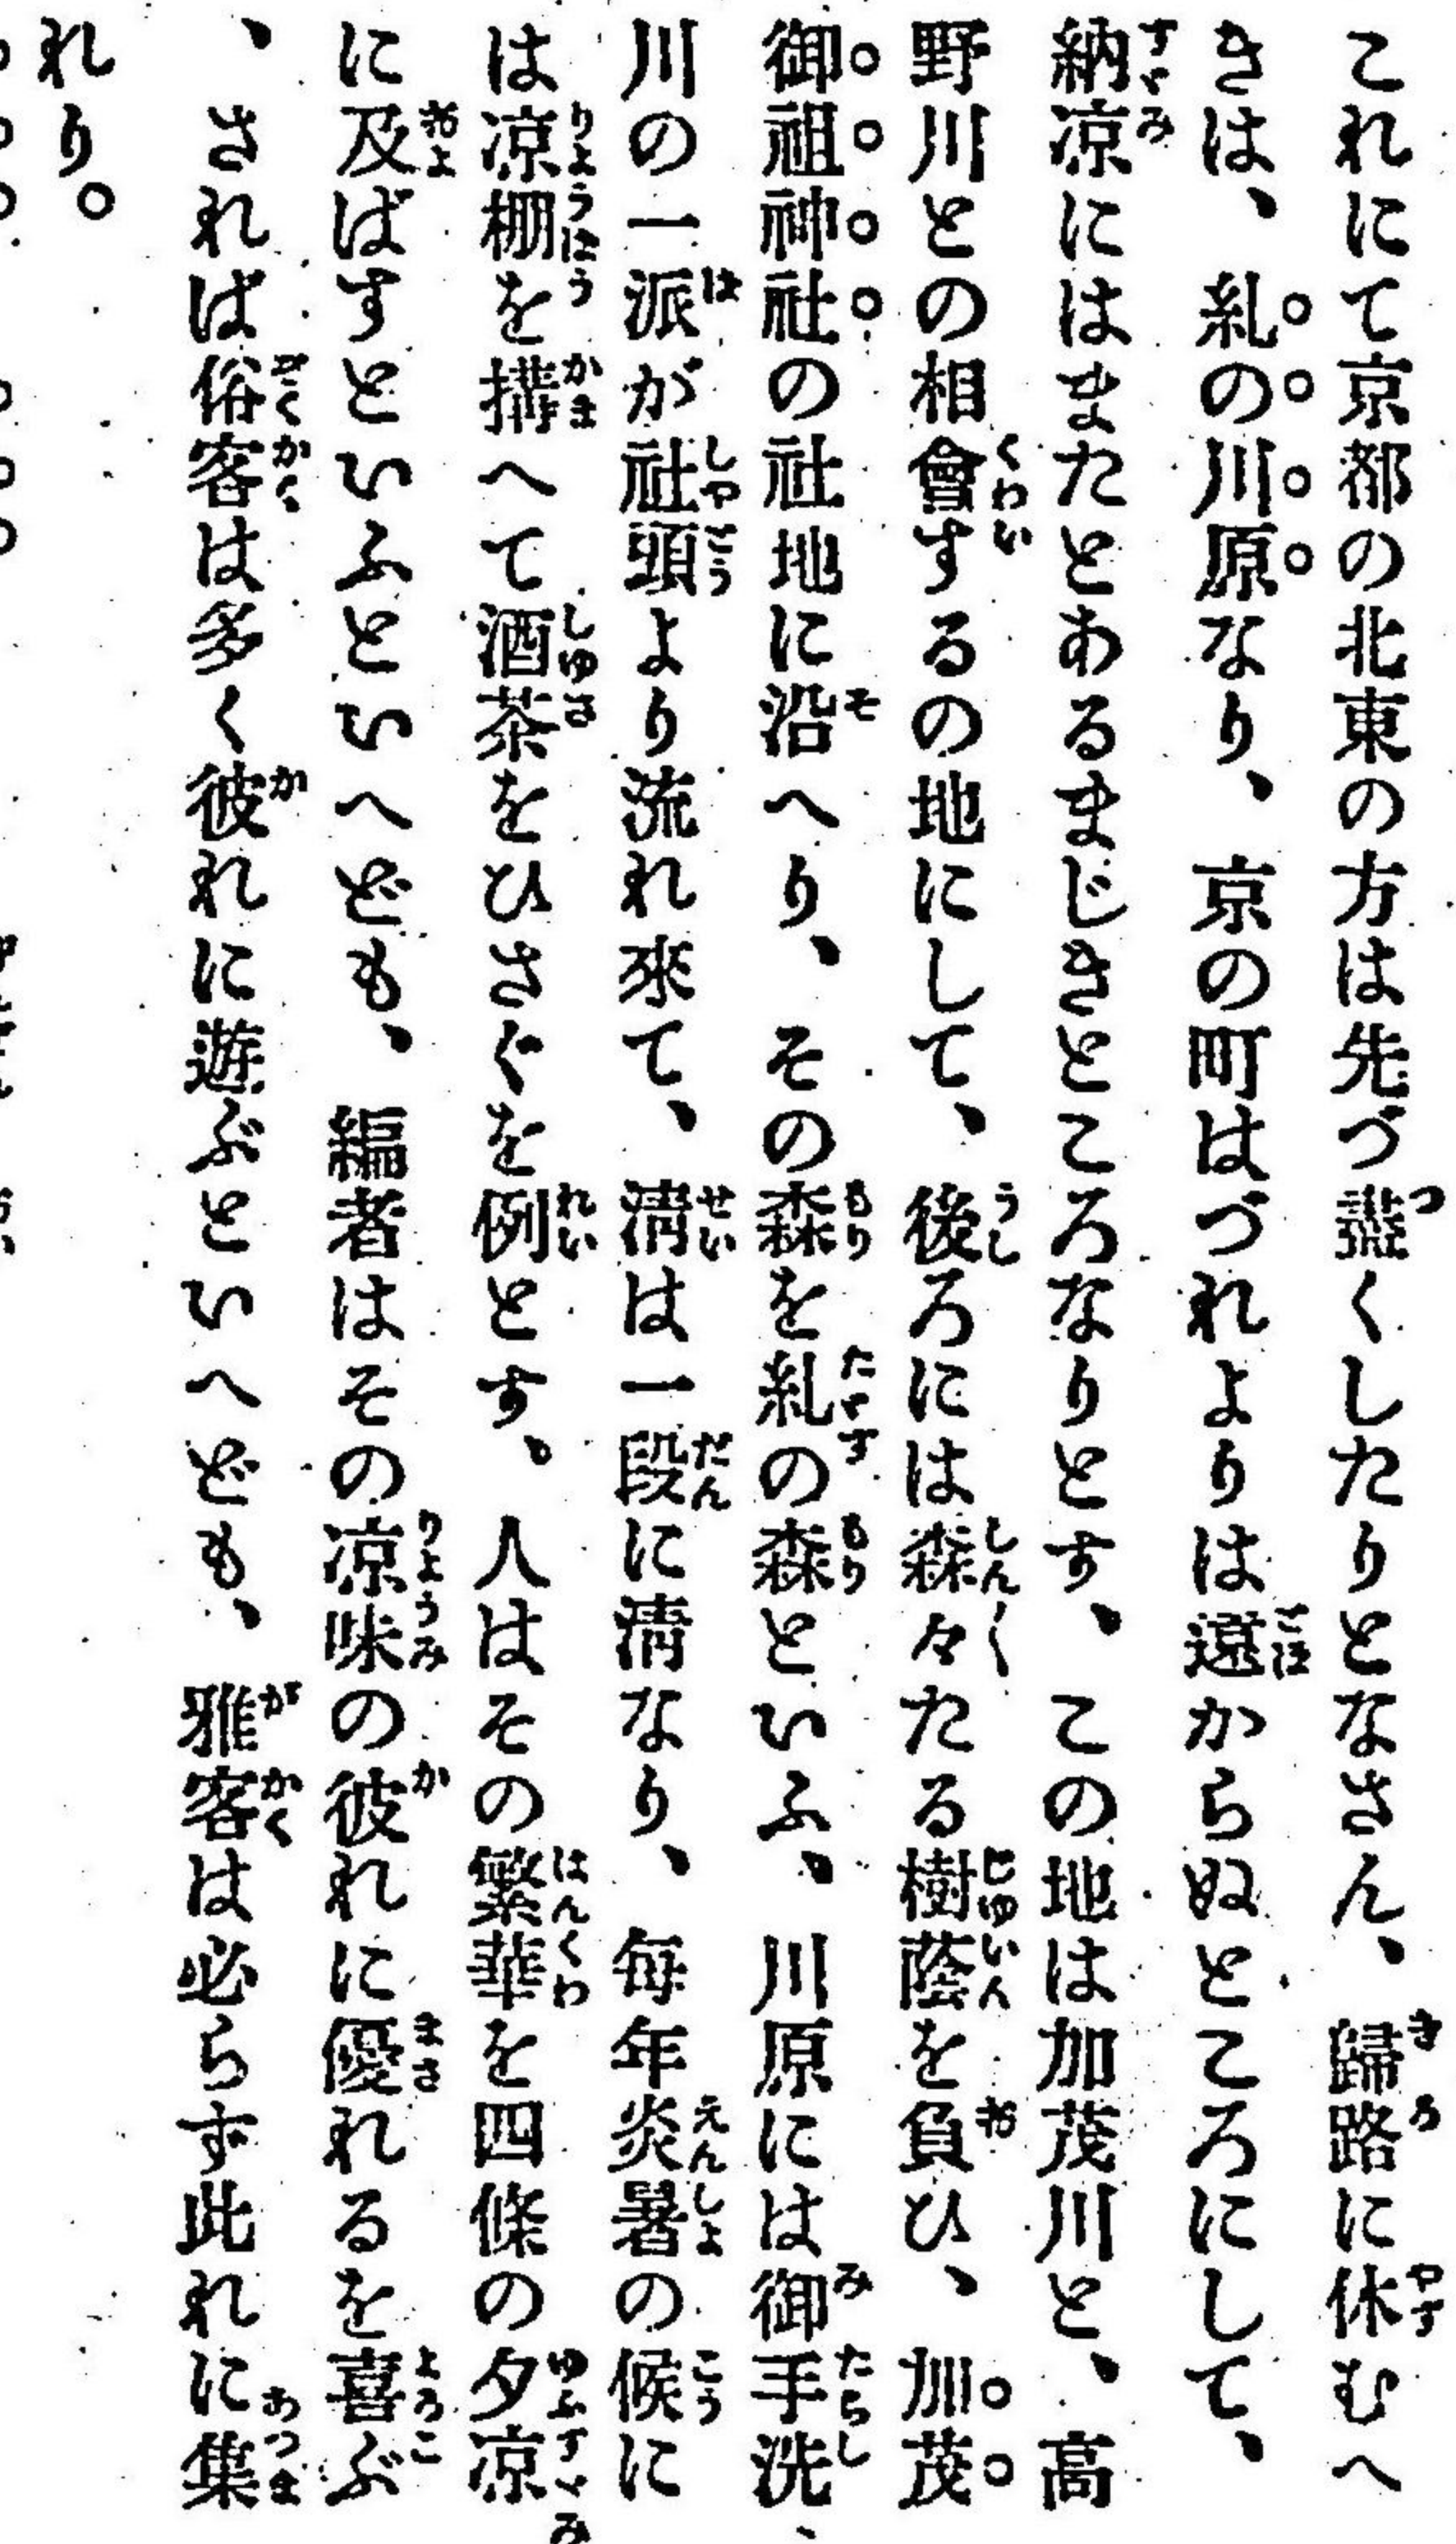 これにて京都の北東の方は先づ盡くしたりとなさん、歸路に休むへ
きは、糺の川原なり、京の町はづれよりは遠からぬところにして、
納凉にはまたとあるまじきところなりとす、この地は加茂川と、高
野川との相會するの地にして、後ろには森々たる樹蔭を負ひ、加茂
御祖神社の社地に沿へり、その森を糺の森といふ、川原には御手洗
川の一派が社頭より流れ來て、淸は一段に淸なり、毎年炎暑の候に
は凉棚を搆へて酒茶をひさぐを例とす、人はその繁華を四條の夕凉
に及ばすといふといへども、編者はその凉味の彼れに優れるを喜ぶ
、されば俗客は多く彼れに遊ぶといへども、雅客は必らず此れに集
れり。